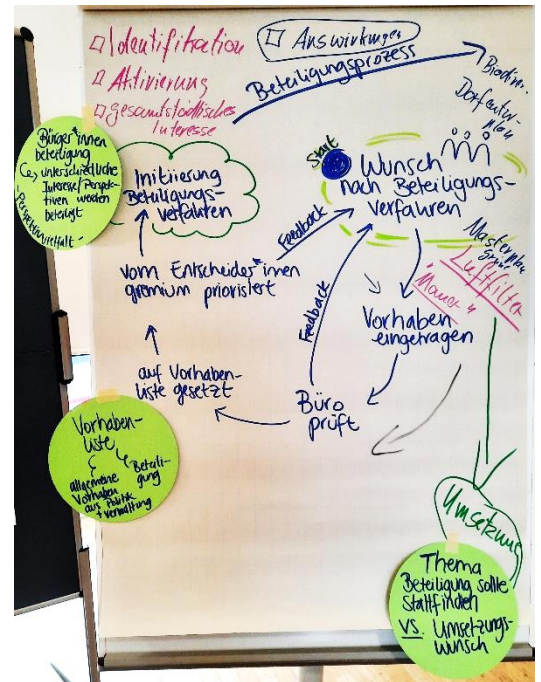 Identifikation
Aktivierung
gesamtstädtisches
Interesse
Auswirkungen
Beteiligungsprozess
Biodiv.
Dorfentw-
plan
Bürger*innen
beteiligung
unterschiedliche
Interesse/Perspek-
tiven werden
beteiligt
-Perspektivvielfalt-
Initiierung
Beteiligungs-
verfahren
Start
Wunsch
nach Beteiligungs-
verfahren
Feedback
vom Entscheider*innen
gremium priorisiert
Masterplan
Luftfilter
"Mauer"
Feedback
Vorhaben
eingetragen
auf Vorhaben-
liste gesetzt
Büro
prüft
Vorhaben-
liste
Beteili-
gung
allgemeine
Vorhaben
aus Politik
+ Verwaltung
Umsetzung
Thema
Beteiligung sollte
stattfinden
VS. Umsetzungs-
wunsch